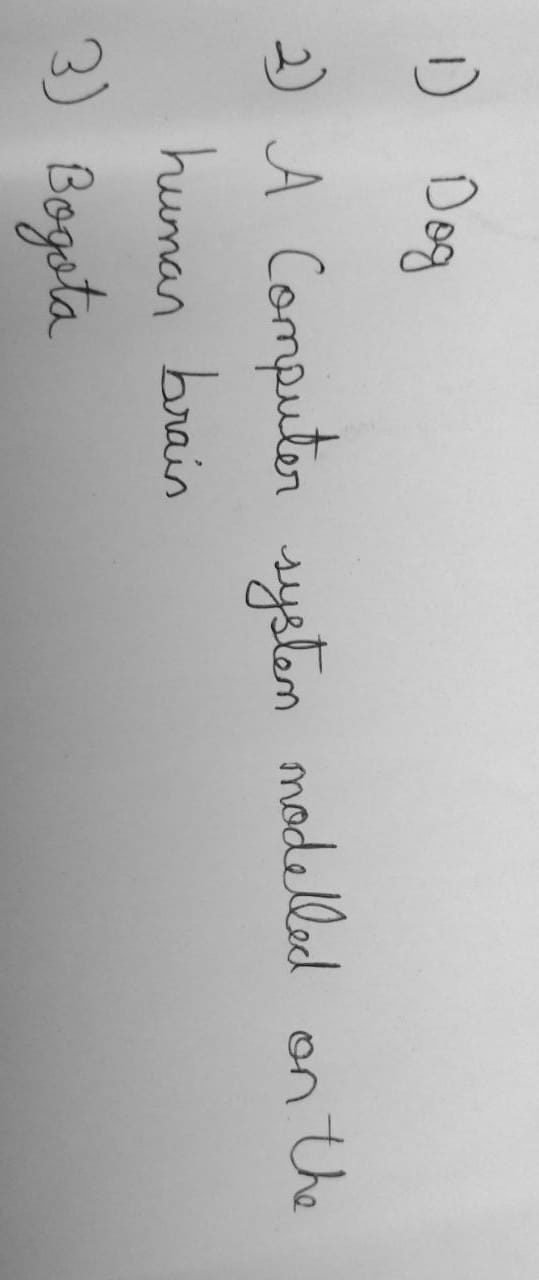 1) Dog
2) A Computer system modelled on the
human brain
3) Bogota